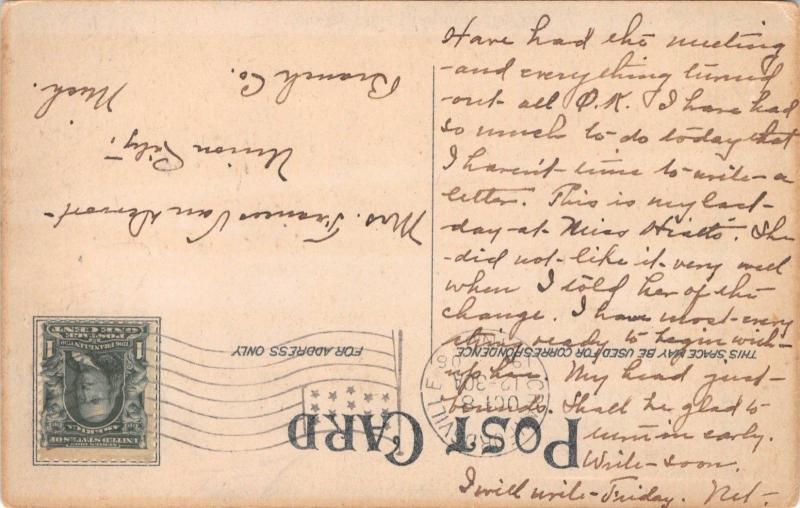 Have had the meeting
and everything turned
out all O.K. I have had
so much to do today that
I haven't time to write a
letter. This is my last
day at Miss Hiatts. She
did not like it very well
when I told her of the
change. I have most every
thing ready to begin with
up here. My head just
bounds. Shall be glad to
turn in early.
Write soon.
I will write Friday. Net.
POST CARD
THIS SPACE MAY BE USED FOR CORRESPONDENCE
FOR ADDRESS ONLY
Mrs. Frances Van Dervort
Union City,
Branch Co.
Mich.
VILLE
OCT 3
12-30A
UNITED STATES OF
AMERICA
1 1
POSTAGE
ONE CENT